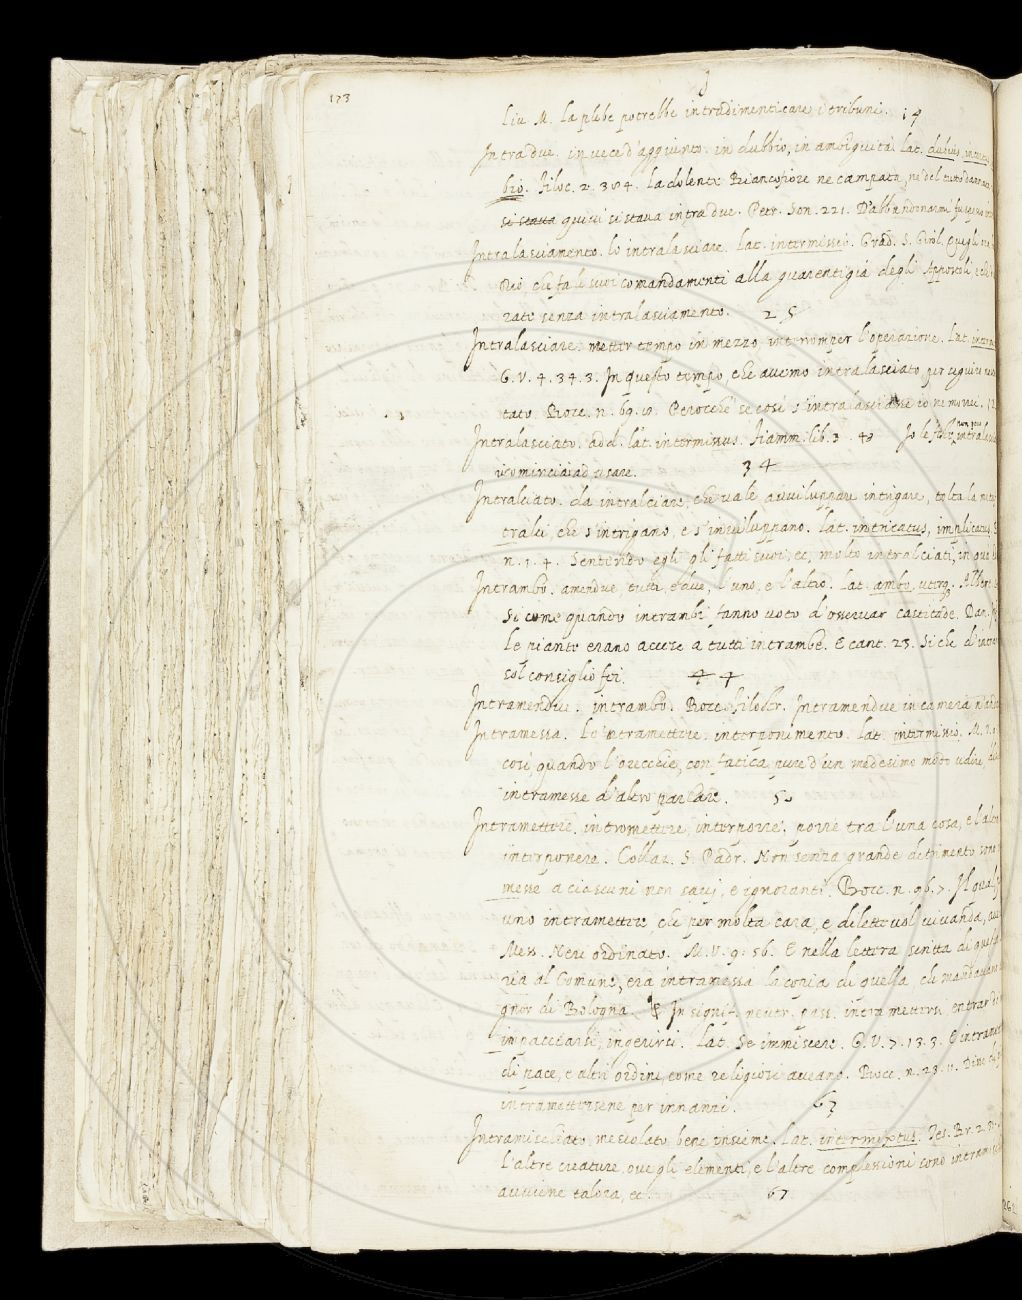 173
I
Liu. M. La plebe potrebbe intradimenticare i tribuni. 14
Intradue. in vece d'aggiunto. in dubbio, in ambiguità. Lat. dubius,
bio. Filoc. 2. 304. La dolente Biancofiore ne campata, ne del tutto dannata
si staua quiui si staua intradue. Petr. Son. 221. D'abbandonarmi fu spesso
Intralasciamento. lo intralasciare. Lat. intermissio. Grad. S. Girol. Quegli
Dio, che fa li suoi comandamenti alla guarentigia degli Appostoli
rato senza intralasciamento. 25
Intralasciare. metter tempo in mezzo interromper l'operazione. Lat.
G. V. 4. 34. 3. In questo tempo, che auemo intralasciato per seguire
tato. Bocc. n. 69. 10. Perocchè se così s'intralasciasse io ne morrei.
Intralasciato. add. lat. intermissus. Fiamm. lib. 3. 48 Io le non
ricominciai ad usare. 34
Intralciato. da intralciare, che vale auuiluppare intrigare, tolta la
tralci, che s'intrigano, e s'inuiluppano. Lat. intricatus, implicatus.
n. 1. 4. Sentendo egli gli fatti suoi, ec, molto intralciati, in qua
Intrambo. amendue, tutti, e due, l'uno, e l'altro. Lat. ambo, uterq. Albert.
Si come quando intrambi fanno uoto d'osseruar castitade. Dan.
Le piante erano accese a tutti intrambe. E cant. 23. Si che d'
sol consiglio fei. 44
Intramendue. intrambo. Bocc. Filostr. Intramendue in camera
Intramessa. Lo 'ntramettere. interponimento. Lat. intermissio. M.
così, quando l'orecchie, con fatica pure d'un medesimo modo udire,
intramesse d'altro parlare. 50
Intramettere. intromettere, interporre. porre tra l'una cosa, e l'altra
interponere. Collaz. S. Padr. Non senza grande detrimento sono
messe a ciascuni non sauj, e ignoranti. Bocc. n. 96. 7. Il quale
uno intramettere, che per molta cara, e diletteuol uiuanda,
Mess. Neri ordinato. M. V. 9. 56. E nella lettera scritta di
ria al Comune, era intramessa la copia di quella, che mandauano
gnor di Bologna. In signif. neutr. pass. intramettersi, entrar
impacciarsi, ingerirsi. Lat. Se immiscere. G. V. 7. 13. 3.
di pace, e altri ordini, come religiosi aueano. Bocc. n. 23. 11.
intramettersene per innanzi. 63
Intramischiato. mescolato bene insieme. Lat. intermixtus. Tes. Br. 2.
L'altre creature, oue gli elementi, e l'altre complessioni sono
auuiene talora, ec. 67